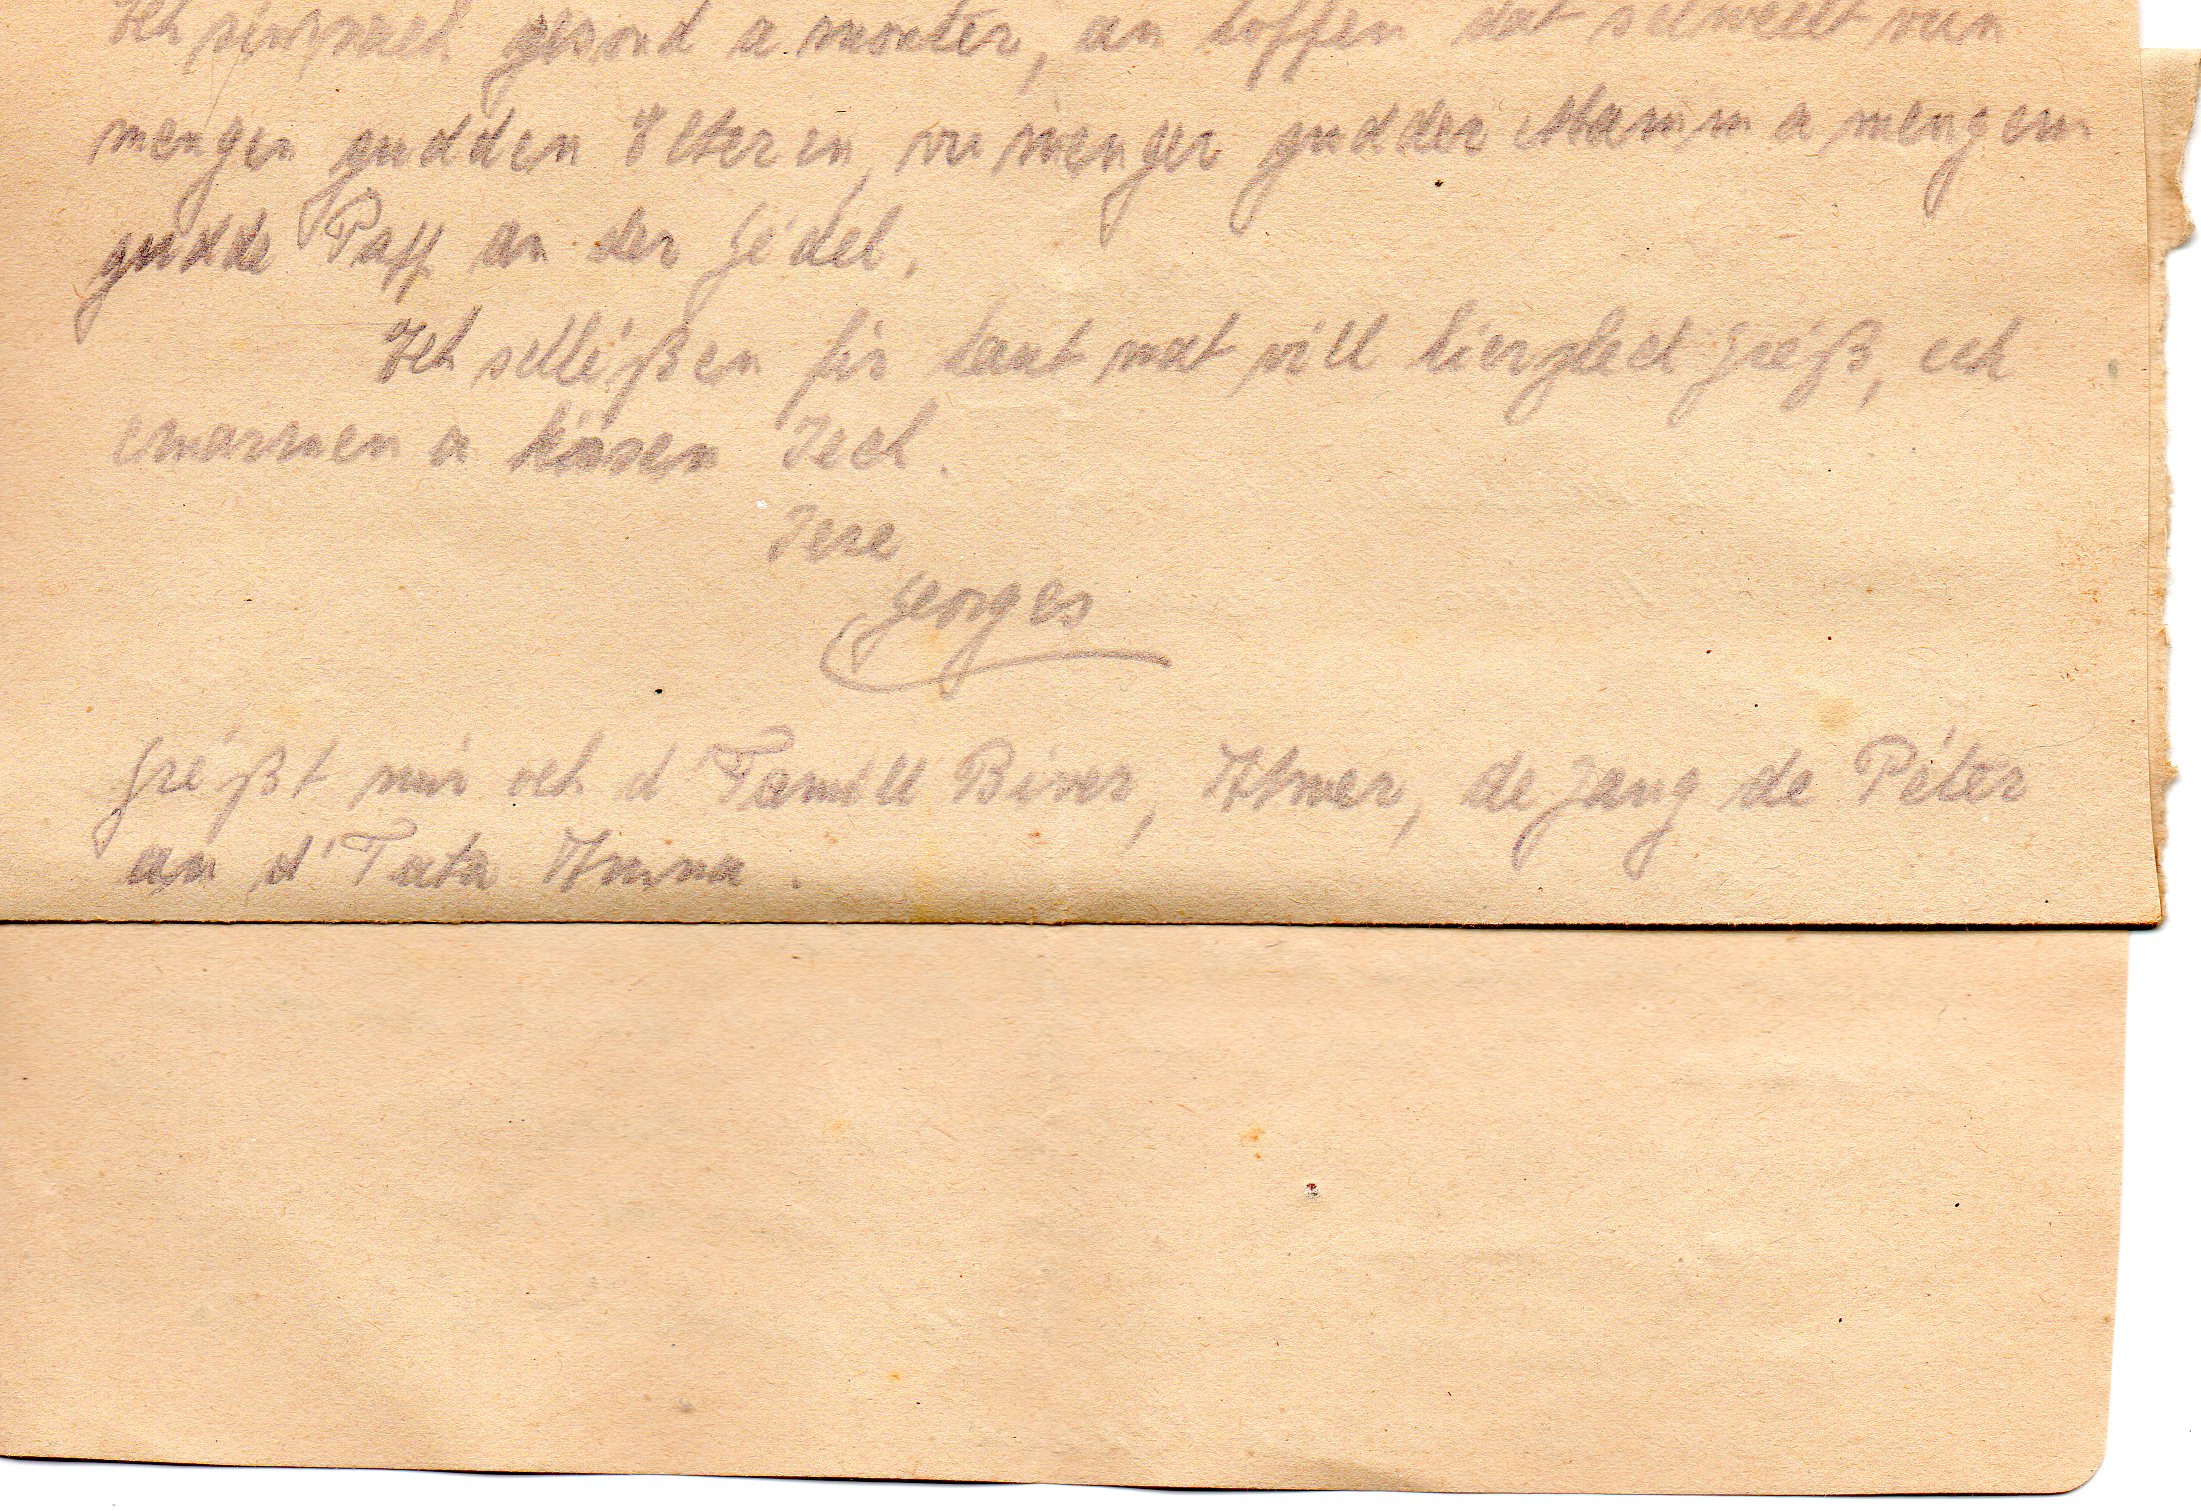 Ech sin nach gesond a monter, an hoffen dat selwecht vun
mengen gudden Elteren, vu menger gudder Mamm a mengem
gudde Papp an der Gédel.
Ech schléßen fir haut mat vill hierzlech Gréiß, ech
emarmen a këssen Iech.
Iere
Georges
Gréißt mir och d'Famill Biver, Alwer, de Jang de Péter
an d'Tata Anna.